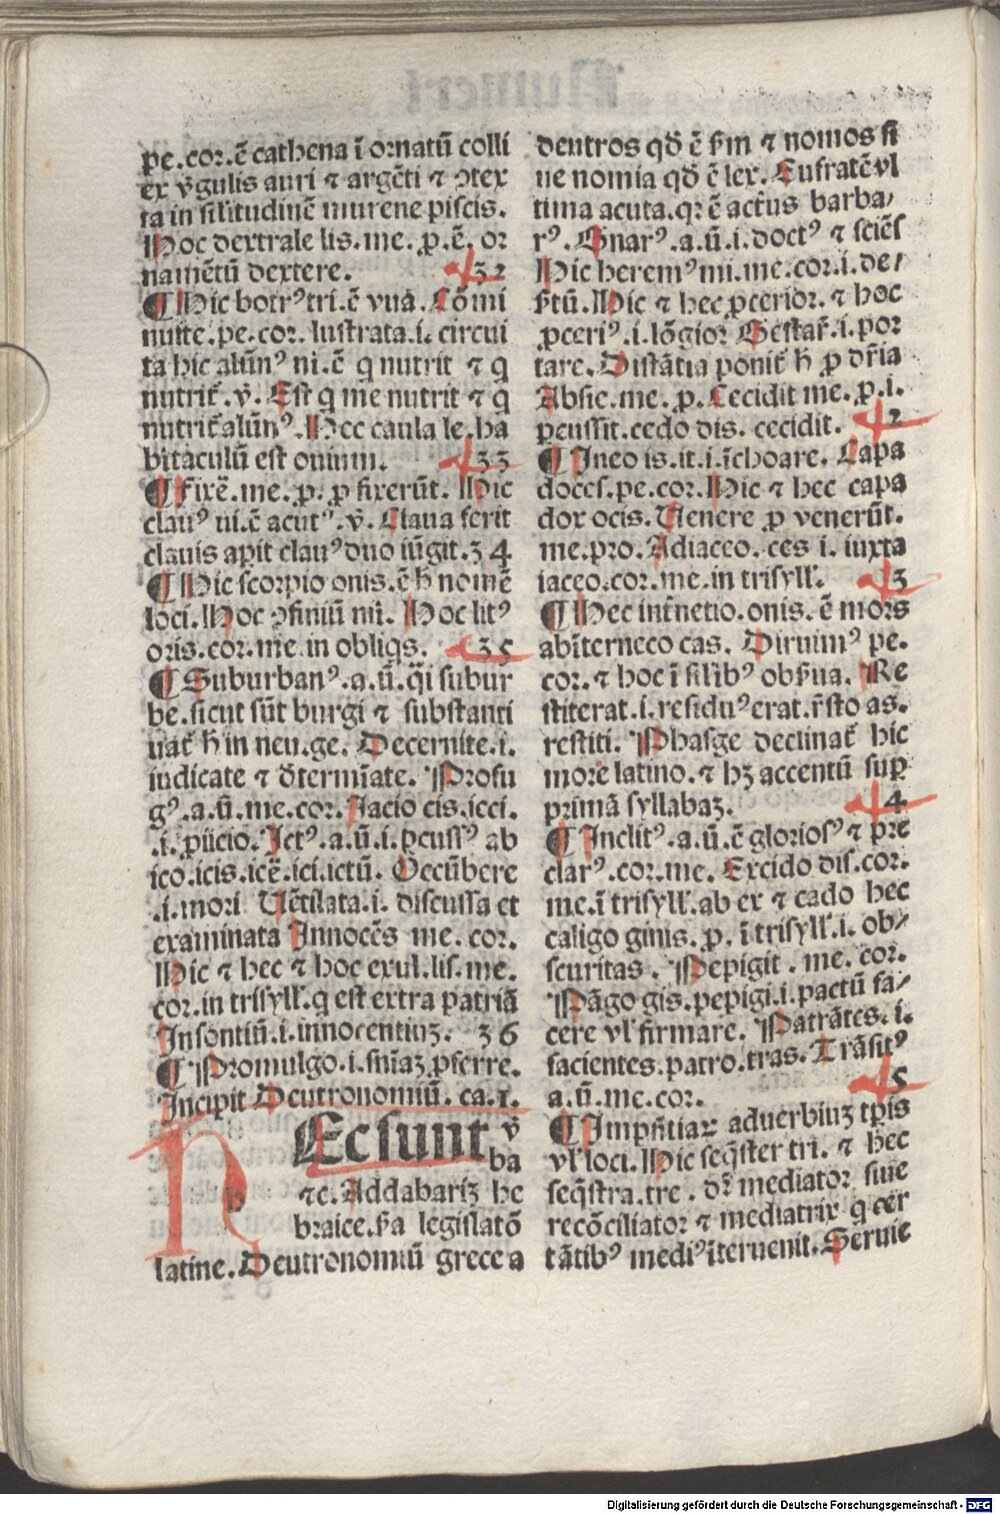 pe.cor.ē cathena ī ornatū colli
ex v̄gulis auri ⁊ argēti ⁊ ↄtex
ta in sil̄itudinē murene piscis.
Hoc dextrale lis.me.p.ē. or
namētū dextere. 32
¶ Hic botrꝰ tri.ē vua. Cōmi
nute.pe.cor. lustrata.i. circui
ta hic alūnꝰ ni.ē q nutrit ⁊ q
nutrit̄.v̄. Est q me nutrit ⁊ q
nutrit̄ alūnꝰ. Hec caula le.ha
bitaculū est ouium. 33
¶ Fixē.me.p. p fixerūt. Hic
clauꝰ ui.ē acutꝰ.v̄. Claua ferit
clauis apit clauꝰ duo iūgit.34
¶ Hic scorpio onis.ē h̄ nomē
loci. Hoc ↄfiniū nii. Hoc litꝰ
oris.cor.me in obliqs. 35
¶ Suburbanꝰ.a.ū.q̄i subur
be.sicut sūt burgi ⁊ substanti
uat̄ h̄ in neu.ge. Decernite.i.
iudicate ⁊ d̄termīate. Profu
gꝰ.a.ū.me.cor. Iacio cis.ieci.
.i.ꝓiicio. Ictꝰ.a.ū.i.ꝑcussꝰ ab
ico.icis.icē.ici.ictū. Occūbere
.i.mori Uētilata.i. discussa et
examinata Innocēs me. cor.
Hic ⁊ hec ⁊ hoc exul.lis.me.
cor.in trisyll̄.q est extra patriā
Insontiū.i.innocentiuꝫ. 36
¶ Promulgo.i.sn̄iaꝫ ꝓferre.
Incipit Deutronomiū. ca.1.
HEc sunt v̄
ba
⁊c. Addabariꝫ he
braice.s̄a legislatō
latine. Deutronomiū grece a
dentros qd̄ ē s̄m ⁊ nomos si
ue nomia qd̄ ē lex. Eufratē vl
tima acuta.qꝛ ē act̄us barba/
rꝰ. Gnarꝰ.a.ū.i.doctꝰ ⁊ sciēs
Hic heremꝰ mi.me.cor.i.de/
s̄tū. Hic ⁊ hec ꝓcerior. ⁊ hoc
ꝓceriꝰ.i.lōgior Gestar̄.i.por
tare. Distātia ponit̄ h̄ ꝓ dr̄ia
Absie.me.p. Cecidit me.p.i.
ꝑcussit.cedo dis. cecidit. 2
¶ Ineo is.it.i.īchoare. Capa
doces.pe.cor. Hic ⁊ hec capa
dox ocis. Uenere ꝓ venerūt.
me.pro. Adiaceo. ces i. iuxta
iaceo.cor.me.in trisyll̄. 3
¶ Hec int̄netio.onis. ē mors
ab īterneco cas. Diruimꝰ pe.
cor. ⁊ hoc ī sil̄ibꝰ obs̄ua. Re
stiterat.i.residuꝰ erat.r̄sto as.
restiti. Phasge declinat̄ hic
more latino. ⁊ hꝫ accentū sup̄
primā syllabaꝫ. 4
¶ Inclitꝰ.a.ū.ē gloriosꝰ ⁊ pre
clarꝰ.cor.me. Excido dis.cor.
me.ī trisyll̄.ab ex ⁊ cado hec
caligo ginis. p. ī trisyll̄.i. ob/
scuritas. Pepigit. me. cor.
Pāgo gis. pepigi.i.pactū fa/
cere vl̄ firmare. Patrātes. i.
facientes.patro.tras. Trāsitꝰ
a.ū.me.cor. 5
¶ Impn̄tiaꝝ aduerbiuꝫ tp̄is
vl̄ loci. Hic seq̄ster tri. ⁊ hec
seq̄stra.tre. dꝛ̄ mediator siue
recōciliator ⁊ mediatrix q cer
tātibꝰ mediꝰ īteruenit. Seruie
Digitalisierung gefördert durch die Deutsche Forschungsgemeinschaft - DFG